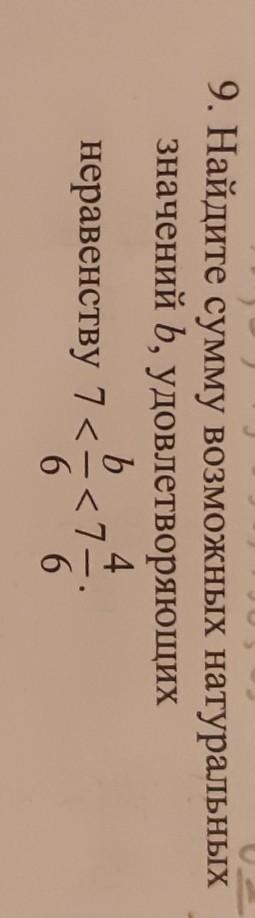 9. Найдите сумму возможных натуральных
значений b, удовлетворяющих
неравенству 7 < b/6 < 7 4/6.